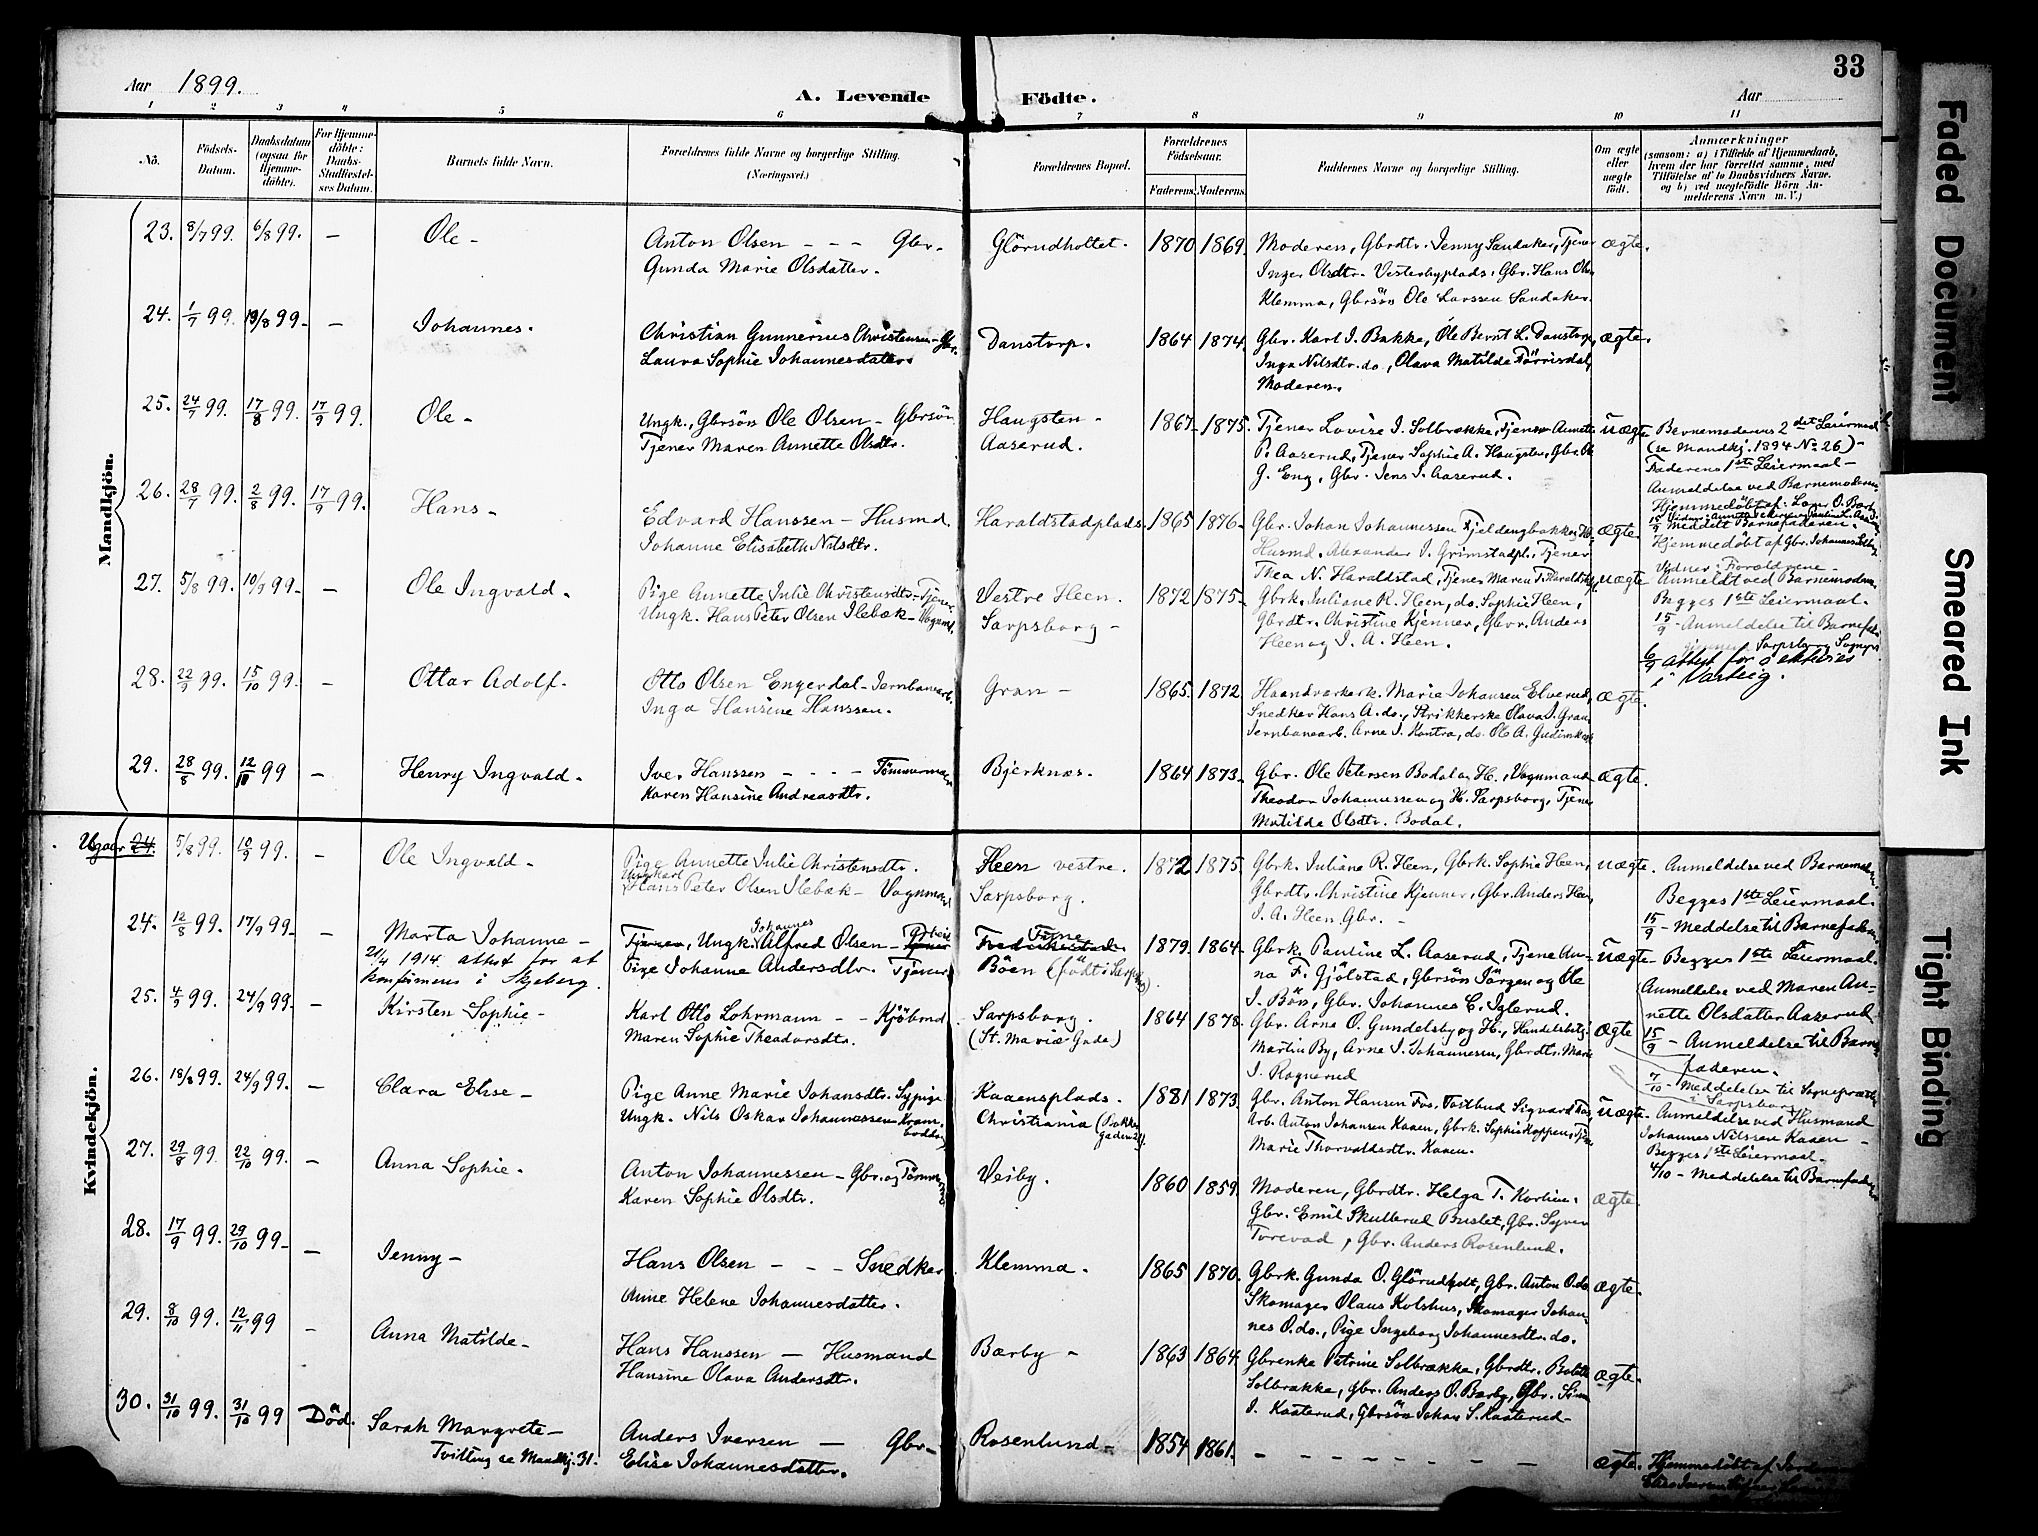 Aar 1899.
A. Levende Födte.
Aar
33
1 2 3 4 5 6 7 8 9 10 11
No.
Födsels-Datum.
Daabsdatum (ogsaa for Hjemmedöbte).
For Hjemmedöbte: Daabs-Stadfæstelses Datum.
Barnets fulde Navn.
Forældrenes fulde Navne og borgerlige Stilling. (Næringsvei.)
Forældrenes Bopæl.
Forældrenes Födselsaar.
Faderens. Moderens.
Faddernes Navne og borgerlige Stilling.
Om ægte eller uægte födt.
Anmærkninger
(saasom: a) i Tilfælde af Hjemmedaab, hvem der har forrettet samme, med Tilföielse af to Daabsvidners Navne, og b) ved uægtefödte Börn Anmelderens Navn m. V.)
Mandkjön.
23. 8/7 99. 6/8 99. — Ole - Anton Olsen - - - Gbr. Glörudholtet. 1870 1869. Moderen, Gbrdtr. Jenny Sandaker, Tjener ægte.
Gunda Marie Olsdatter. Inger Olsdtr. Vesterbyplads, Gbr. Hans Ols.
Klemma, Gbrsön Ole Larssen Sandaker.
24. 1/7 99. 13/8 99. — Johannes. Christian Gunnerius Christensen - Gbr. Danstorp. 1864 1874. Gbr. Karl J. Bakke, Ole Bernt L. Danstorp, ægte.
Laura Sophie Johannesdatter. Inga Nilsdtr. do, Olava Matilde Törrisdal,
Moderen.
25. 24/7 99. 17/8 99. 17/9 99. Ole - Ungk., Gbrsön Ole Olsen - Gbrsön Haugsten - 1867. 1875. Tjener Lovise J. Solbrække, Tjener Annette uægte Barnemoderens 2det Leiermaal
Tjener Maren Annette Olsdtr. Aaserud. P. Aaserud, Tjener Sophie A. Haugsten, Gbr. Ole (se Mandkj. 1894 No 26) -
G. Eng, Gbr. Jens J. Aaserud. Faderens 1ste Leiermaal -
Anmeldelse ved Barnemoderen
Hjemmedöbt af
15/9 meddelt Barnefaderen.
26. 28/7 99. 2/8 99. 17/9 99. Hans - Edvard Hanssen - Husmd. Haraldstadplads 1865 1876. Gbr. Johan Johannessen Fjeldengbakken, ægte. Hjemmedöbt af Gbr. Johannes
Johanne Elisabeth Nilsdtr. Husmd. Alexander J. Grimstadpl., Tjener Vidner: Forældrene -
Thea N. Haraldstad, Tjener Maren
27. 5/8 99. 10/9 99. — Ole Ingvald. Pige Annette Julie Christensdtr. - Tjener Vestre Heen. 1872 1875. Gbrk. Juliane R. Heen, do. Sophie Heen, uægte Anmeldt ved Barnemoderen
Ungk. Hans Peter Olsen Ilebæk - Vognmd. Sarpsborg - Gbrdtr. Christine Kjenner, Gbr. Anders Begges 1ste Leiermaal.
Heen og J. A. Heen. 15/9 - Anmeldelse til Barnefad.
Sarpsborg Sognepr.
6/9 attest for
i Varteig.
28. 22/9 99. 15/10 99. — Ottar Adolf. Otto Olsen Engerdal - Jernbanearb. Gran - 1865. 1872. Haandværkerk. Marie Johansen Elverud, ægte.
Inga Hansine Hanssen. Snedker Hans A. do., Strikkerske Olava J. Gran
Jernbanearb. Arne J. Kontra, do. Ole A. Gudim
29. 28/8 99. 12/10 99 — Henry Ingvald. Iver Hanssen - - - - Tömmermand Bjerknæs. 1864 1873. Gbr. Ole Petersen Bodal og H., Vognmand ægte.
Karen Hansine Andreasdtr. Theodor Johannessen og H. Sarpsborg, Tjener
Matilda Olsdtr. Bodal.
Kvindekjön.
Ugær 24. 5/8 99. 10/9 99. — Ole Ingvald. Pige Annette Julie Christensdtr. Heen vestre. 1872 1875. Gbrk. Juliane R. Heen, Gbrk. Sophie Heen, uægte. Anmeldelse ved Barnemoderen.
Ungkarl Hans Peter Olsen Ilebæk - Vognmand Sarpsborg. Gbrdtr. Christine Kjenner, Gbr. Anders Heen, Begges 1ste Leiermaal.
J. A. Heen Gbr. - 15/9 - Meddelelse til Barnefaderen.
24. 12/8 99. 17/9 99. — Marta Johanne - Tjener, Ungk. Johannes Alfred Olsen - Fredrikstad 1879. 1864. Gbrk. Pauline L. Aaserud, Tjener An- uægte - Begges 1ste Leiermaal.
21/4 1914 attest for at Pige Johanne Andersdtr. Tjener Böen (födt i Sarpsborg). na F. Gjölstad, Gbrsön Jörgen og Ole Anmeldelse ved Maren An-
konfirmeres i Skjeberg. J. Bön, Gbr. Johannes C. Iglerud. nette Olsdatter Aaserud
15/9 - Anmeldelse til Barne
faderen.
25. 4/9 99. 24/9 99. — Kirsten Sophie - Karl Otto Lohrmann - - Kjöbmd. Sarpsborg. 1864 1878. Gbr. Arne O. Gundelsby og H., Handelsbetj. ægte
Maren Sophie Theodorsdtr. (St. Mariæ Gade) Martin By, Arne J. Johannesen, Gbrdtr. Marie
J. Ragnerud
7/10 - Meddelelse til Sognepræsten
i Sarpsborg
26. 18/8 99. 24/9 99. — Clara Elise - Pige Anne Marie Johansdtr. Sypige Kaaensplads. 1881 1873. Gbr. Anton Hansen Fos. Tostbud Sigvard uægte. - Anmeldelse ved Husmand
Ungk. Nils Oskar Johannessen Christiania Arb. Anton Johansen Kaaen, Gbrk. Sophie Koppen, Johannes Nilssen Kaaen -
Marie Thorvaldsdtr. Kaaen. Begges 1ste Leiermaal.
4/10 - Meddelelse til Barnefaderen
27. 29/8 99. 22/10 99. — Anna Sophie. Anton Johannessen - Gbr. og Tömmermd. Veiby. 1860 1859. Moderen, Gbrdtr. Helga T. ægte.
Karen Sophie Olsdtr. Gbr. Emil Skullerud Buslet, Gbr. Syver
Torevad, Gbr. Anders Rosenlund.
28. 17/9 99. 29/10 99 - — Jenny - Hans Olsen - - - Snedker Klemma. 1865 1870. Gbrk. Gunda O. Glörudholt, Gbr. Anton O. do. ægte.
Anne Helene Johannesdatter. Skomager Olaus Kolshus, Skomager Johan-
nes O. do., Pige Ingeborg Johannesdtr. do.
29. 8/10 99. 12/11 99 - Anna Matilde - Hans Hanssen - Husmand Bærby - 1863 1864. Gbrenke Petrine Solbrække, Gbrdtr. ægte.
Hansine Olava Andersdtr. Solbrække, Gbr. Anders O. Bærby, Gbr. Simen
J. Kaaterud, Gbrsön Johan S. Kaaterud -
30. 31/10 99. 31/10 99 Död. Sarah Margrete - Anders Iversen - Gbr - Rosenlund - 1854 1861. - - - - - - - ægte. Hjemmedöbt af
Tvilling se Mandkj. 31. Elise Johannesdatter.
Faded Document
Smeared Ink
Tight Binding